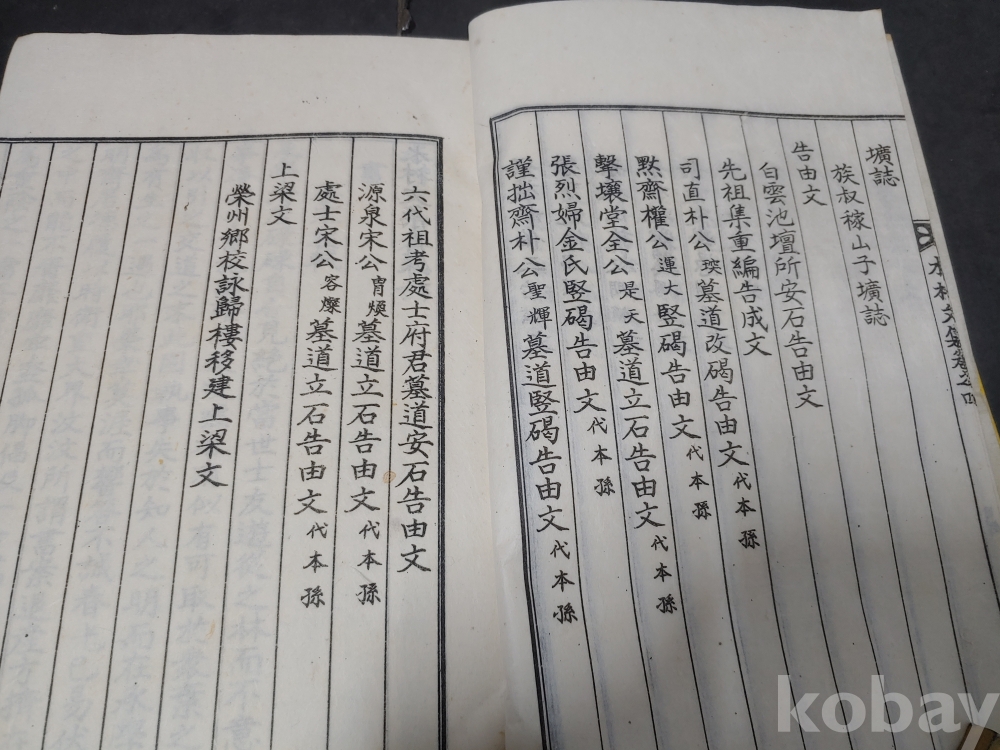 壙誌
族叔稼山子壙誌
告由文
白雲池壇所安石告由文
先祖集重編告成文
司直朴公瑛墓道改碣告由文代本孫
默齋權公運大竪碣告由文代本孫
擊壤堂全公是天墓道立石告由文代本孫
張烈婦金氏竪碣告由文代本孫
謹拙齋朴公聖輝墓道竪碣告由文代本孫
六代祖考處士府君墓道安石告由文
源泉宋公胄煥墓道立石告由文代本孫
處士宋公容燦墓道立石告由文代本孫
上梁文
榮州鄉校詠歸樓移建上梁文
文集卷之四
kobay